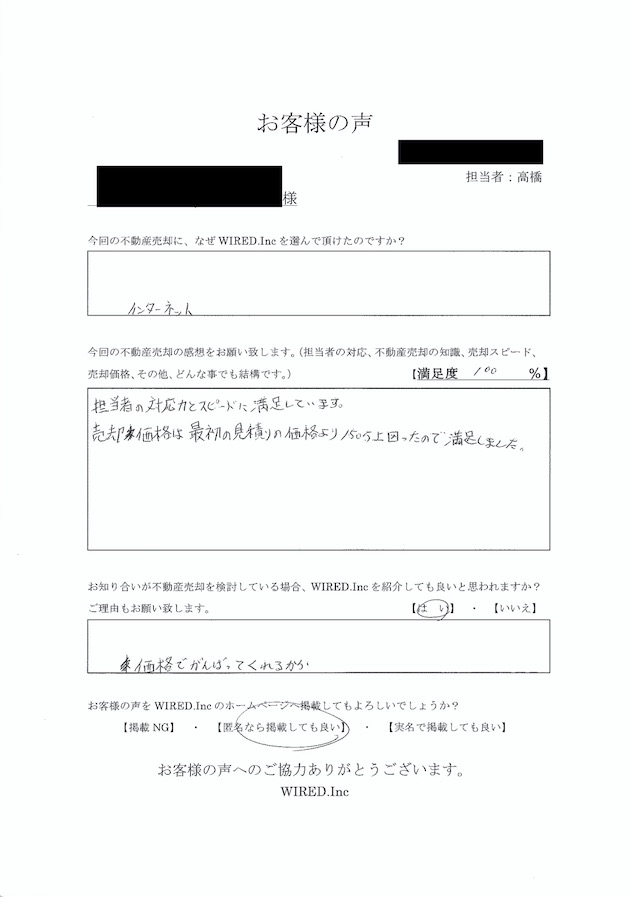 お客様の声
担当者：高橋
様
今回の不動産売却に、なぜWIRED.Incを選んで頂けたのですか？
インターネット
今回の不動産売却の感想をお願い致します。（担当者の対応、不動産売却の知識、売却スピード、
売却価格、その他、どんな事でも結構です。）　【満足度 100 %】
担当者の対応力とスピードに満足しています。
売却価格は最初の見積りの価格より150万上回ったので満足しました。
お知り合いが不動産売却を検討している場合、WIRED.Incを紹介しても良いと思われますか？
ご理由もお願い致します。　【はい】・【いいえ】
価格でがんばってくれるから
お客様の声をWIRED.Incのホームページへ掲載してもよろしいでしょうか？
【掲載NG】・【匿名なら掲載しても良い】・【実名で掲載しても良い】
お客様の声へのご協力ありがとうございます。
WIRED.Inc